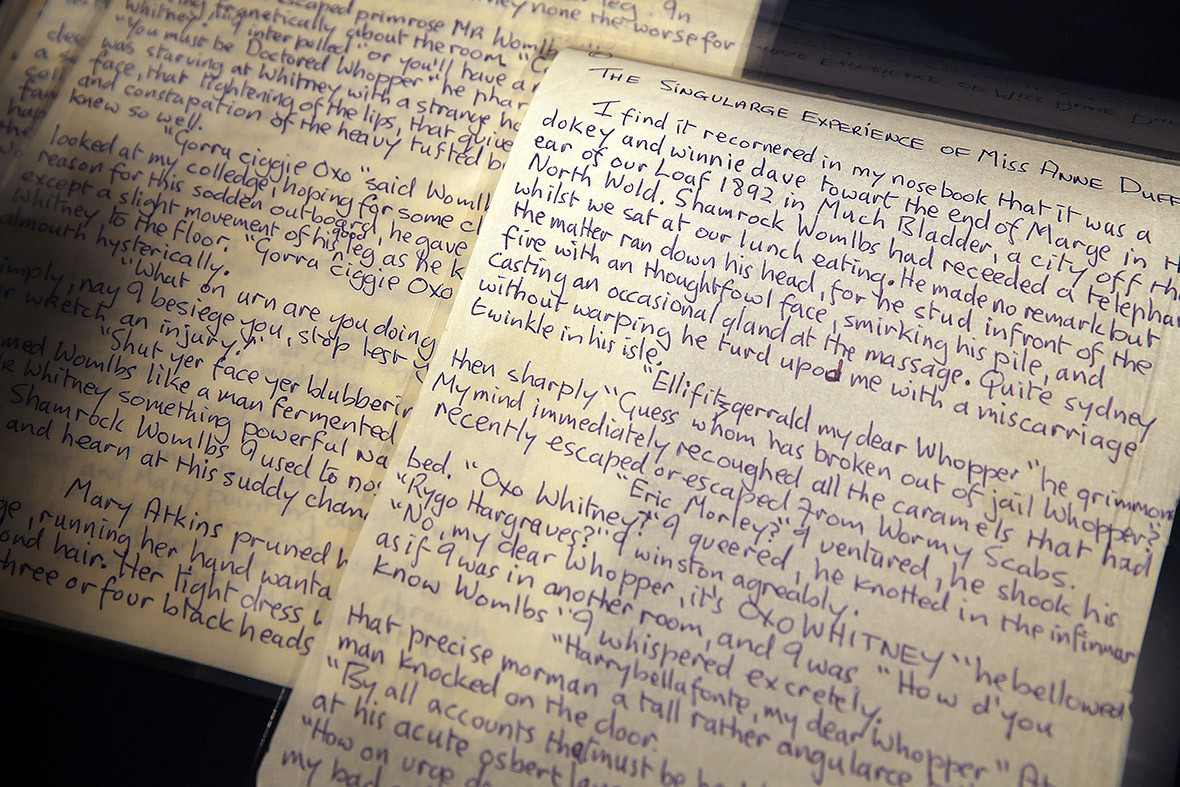 leg. 9n
they none the worse for
escaped primrose MR Womlb
Whitney." "C
magnetically about the room.
interpolled "or you'll have a
"You must be Doctored Whopper" he phar
was starving at Whitney with a strange
face, that tightening of the lips, that quive
and constapation of the heavy tufted b
knew so well.
"Gorra ciggie Oxo" said Womlb
looked at my colledge, hoping for some c
reason for this sodden outboard, he gave
except a slight movement of his good leg as he k
Whitney to the floor. "Gorra Ciggie Oxo
almouth hysterically.
"What on urn are you doing
imply, nay 9 besiege you, stop lest
wretch an injury."
"Shut yer face yer blubberin
med Womlbs like a man fermented
Whitney something powerful
Shamrock Womlbs 9 used to no
and hearn at this suddy chan
Mary Atkins pruned
ge, running her hand wanta
ond hair. Her tight dress,
three or four blackheads
THE SINGULARGE EXPERIENCE OF MISS ANNE DUFF
I find it recornered in my nosebook that it was a
dokey and winnie dave towart the end of Marge in
ear of our Loaf 1892 in Much Bladder, a city off the
North Wold. Shamrock Womlbs had receeded a telepha
whilst we sat at our lunch eating. He made no remark but
the matter ran down his head, for he stud infront of the
fire with an thoughtfowl face, smirking his pile, and
casting an occasional gland at the massage. Quite sydney
without warping he turd upod me with a miscarriage
twinkle in his isle.
"Ellifitzgerrald my dear Whopper" he grimmon
then sharply "Guess whom has broken out of jail Whopper?"
My mind immediately recoughed all the caramels that had
recently escaped or escaped from Wormy Scabs.
"Eric Morley?" 9 ventured, he shook his
bed. "Oxo Whitney?" 9 queered, he knotted in the infirmar
"Rygo Hargraves?" 9 winston agreably.
"No, my dear Whopper, it's OXO WHITNEY" he bellowed
as if 9 was in another room, and 9 was "How d'you
know Womlbs" 9 whispered excretely.
"Harrybellafonte, my dear Whopper" At
that precise morman a tall rather angularce
man knocked on the door.
"By all accounts that must be
at his acute osbert
"How on urge
my bad